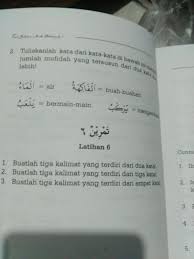 2. Tuliskanlah kata dari kata-kata di bawah ini
jumlah mufidah yang tersusun dari dua kata
lebih!
اَلْمَاءُ = air اَلْفَاكِهَةُ = buah-buahan
يَلْعَبُ = bermain-main يَرْكَبُ = mengendarai
تَمْرِيْن ٦
Latihan 6
1. Buatlah tiga kalimat yang terdiri dari dua kata!
2. Buatlah tiga kalimat yang terdiri dari tiga kata!
3. Buatlah tiga kalimat yang terdiri dari empat kata!
Cont
1.
2.
3.